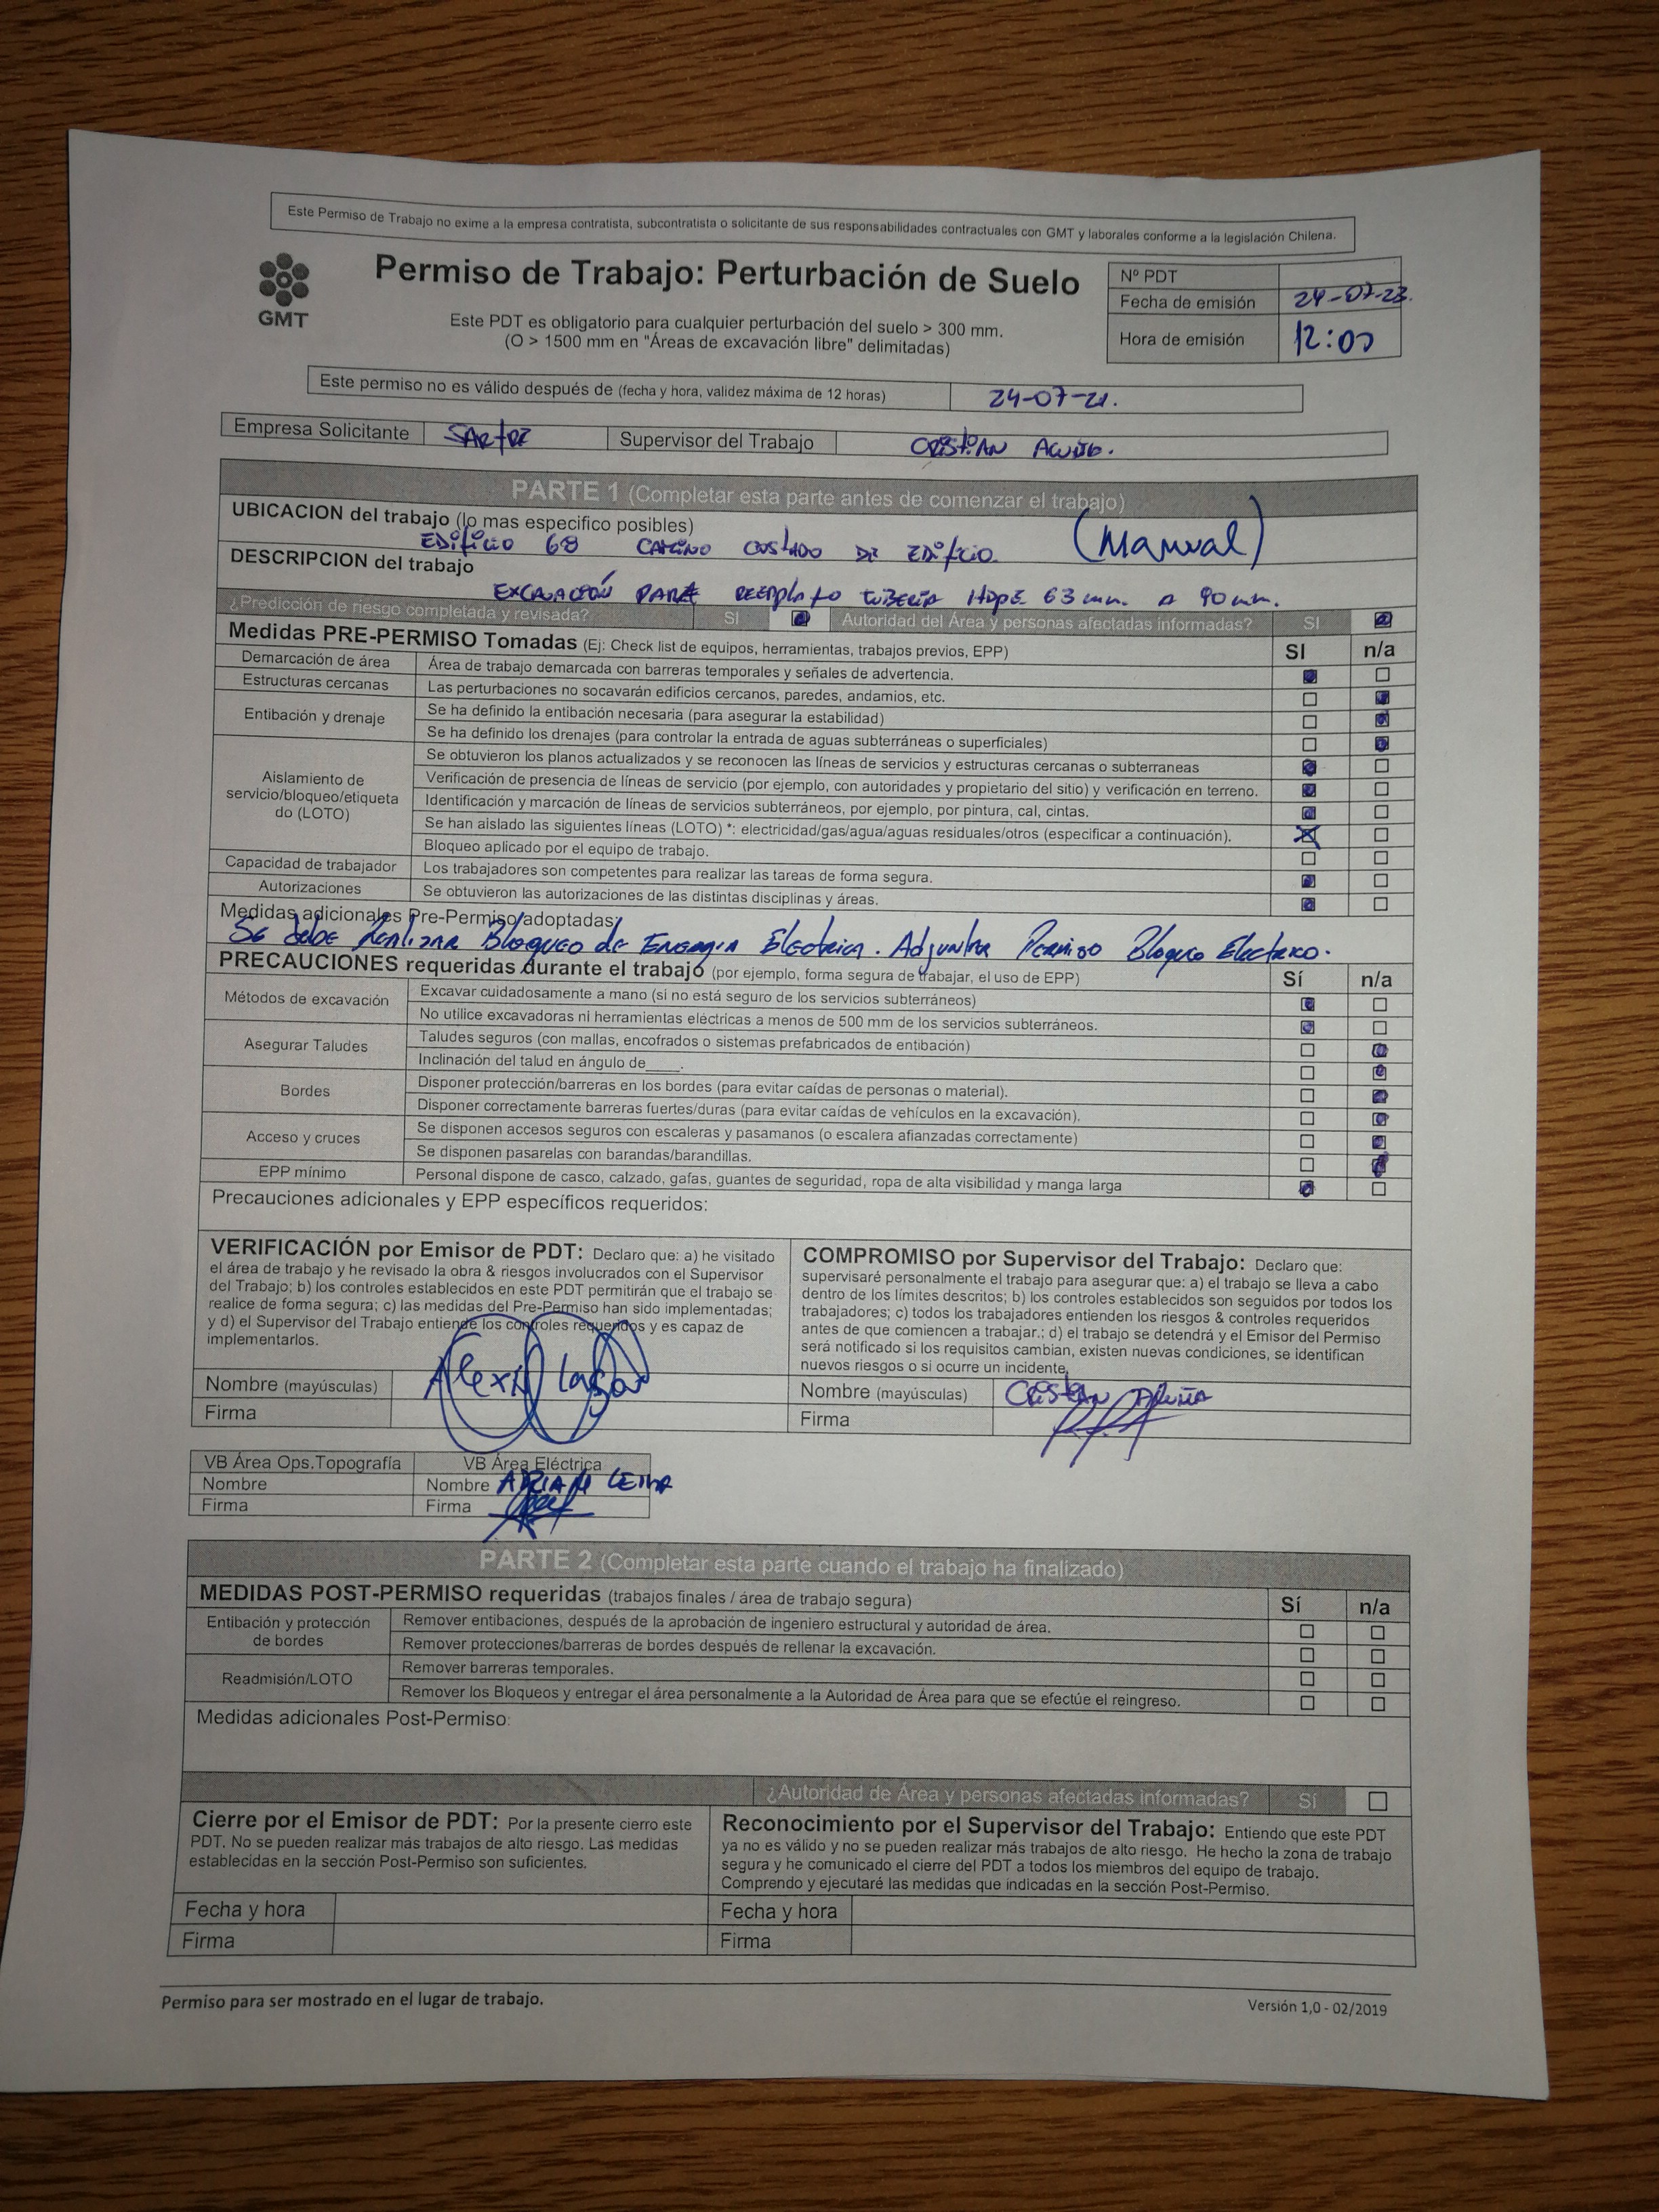 Este Permiso de Trabajo no exime a la empresa contratista, subcontratista o solicitante de sus responsabilidades contractuales con GMT y laborales conforme a la legislación Chilena.
GMT
Permiso de Trabajo: Perturbación de Suelo
Este PDT es obligatorio para cualquier perturbación del suelo > 300 mm.
(O > 1500 mm en "Áreas de excavación libre" delimitadas)
Nº PDT
Fecha de emisión 24-07-23.
Hora de emisión 12:00
Este permiso no es válido después de (fecha y hora, validez máxima de 12 horas) 24-07-21.
Empresa Solicitante Supervisor del Trabajo CRISTIAN
PARTE 1 (Completar esta parte antes de comenzar el trabajo)
UBICACION del trabajo (lo mas especifico posibles) (Manual)
EDificio 68 CAMINO COSTADO DE EDificio.
DESCRIPCION del trabajo
EXCAVACIÓN PARA REEMPLAZO TUBERIA HDPE 63 mm. A 90 mm.
¿Predicción de riesgo completada y revisada? SI Autoridad del Área y personas afectadas informadas? SI
Medidas PRE-PERMISO Tomadas (Ej: Check list de equipos, herramientas, trabajos previos, EPP) SI n/a
Demarcación de área Área de trabajo demarcada con barreras temporales y señales de advertencia.
Estructuras cercanas Las perturbaciones no socavarán edificios cercanos, paredes, andamios, etc.
Entibación y drenaje Se ha definido la entibación necesaria (para asegurar la estabilidad)
Se ha definido los drenajes (para controlar la entrada de aguas subterráneas o superficiales)
Aislamiento de servicio/bloqueo/etiqueta do (LOTO) Se obtuvieron los planos actualizados y se reconocen las líneas de servicios y estructuras cercanas o subterraneas
Verificación de presencia de líneas de servicio (por ejemplo, con autoridades y propietario del sitio) y verificación en terreno.
Identificación y marcación de líneas de servicios subterráneos, por ejemplo, por pintura, cal, cintas.
Se han aislado las siguientes líneas (LOTO) *: electricidad/gas/agua/aguas residuales/otros (especificar a continuación).
Bloqueo aplicado por el equipo de trabajo.
Capacidad de trabajador Los trabajadores son competentes para realizar las tareas de forma segura.
Autorizaciones Se obtuvieron las autorizaciones de las distintas disciplinas y áreas.
Medidas adicionales Pre-Permiso adoptadas:
Se debe Realizar Bloqueo de Energia Electrica. Adjuntar Permiso Bloqueo Electrico.
PRECAUCIONES requeridas durante el trabajo (por ejemplo, forma segura de trabajar, el uso de EPP) Sí n/a
Métodos de excavación Excavar cuidadosamente a mano (si no está seguro de los servicios subterráneos)
No utilice excavadoras ni herramientas eléctricas a menos de 500 mm de los servicios subterráneos.
Asegurar Taludes Taludes seguros (con mallas, encofrados o sistemas prefabricados de entibación)
Inclinación del talud en ángulo de____.
Bordes Disponer protección/barreras en los bordes (para evitar caídas de personas o material).
Disponer correctamente barreras fuertes/duras (para evitar caídas de vehículos en la excavación).
Acceso y cruces Se disponen accesos seguros con escaleras y pasamanos (o escalera afianzadas correctamente)
Se disponen pasarelas con barandas/barandillas.
EPP mínimo Personal dispone de casco, calzado, gafas, guantes de seguridad, ropa de alta visibilidad y manga larga
Precauciones adicionales y EPP específicos requeridos:
VERIFICACIÓN por Emisor de PDT: Declaro que: a) he visitado
el área de trabajo y he revisado la obra & riesgos involucrados con el Supervisor
del Trabajo; b) los controles establecidos en este PDT permitirán que el trabajo se
realice de forma segura; c) las medidas del Pre-Permiso han sido implementadas;
y d) el Supervisor del Trabajo entiende los controles requeridos y es capaz de
implementarlos.
Nombre (mayúsculas)
Firma
COMPROMISO por Supervisor del Trabajo: Declaro que:
supervisaré personalmente el trabajo para asegurar que: a) el trabajo se lleva a cabo
dentro de los límites descritos; b) los controles establecidos son seguidos por todos los
trabajadores; c) todos los trabajadores entienden los riesgos & controles requeridos
antes de que comiencen a trabajar.; d) el trabajo se detendrá y el Emisor del Permiso
será notificado si los requisitos cambian, existen nuevas condiciones, se identifican
nuevos riesgos o si ocurre un incidente.
Nombre (mayúsculas) CRISTIAN ACUÑA
Firma
VB Área Ops.Topografía VB Área Eléctrica
Nombre Nombre ADRIAN LEIVA
Firma Firma
PARTE 2 (Completar esta parte cuando el trabajo ha finalizado)
MEDIDAS POST-PERMISO requeridas (trabajos finales / área de trabajo segura) Sí n/a
Entibación y protección de bordes Remover entibaciones, después de la aprobación de ingeniero estructural y autoridad de área.
Remover protecciones/barreras de bordes después de rellenar la excavación.
Readmisión/LOTO Remover barreras temporales.
Remover los Bloqueos y entregar el área personalmente a la Autoridad de Área para que se efectúe el reingreso.
Medidas adicionales Post-Permiso:
¿Autoridad de Área y personas afectadas informadas? Sí
Cierre por el Emisor de PDT: Por la presente cierro este
PDT. No se pueden realizar más trabajos de alto riesgo. Las medidas
establecidas en la sección Post-Permiso son suficientes.
Fecha y hora
Firma
Reconocimiento por el Supervisor del Trabajo: Entiendo que este PDT
ya no es válido y no se pueden realizar más trabajos de alto riesgo. He hecho la zona de trabajo
segura y he comunicado el cierre del PDT a todos los miembros del equipo de trabajo.
Comprendo y ejecutaré las medidas que indicadas en la sección Post-Permiso.
Fecha y hora
Firma
Permiso para ser mostrado en el lugar de trabajo.
Versión 1,0 - 02/2019